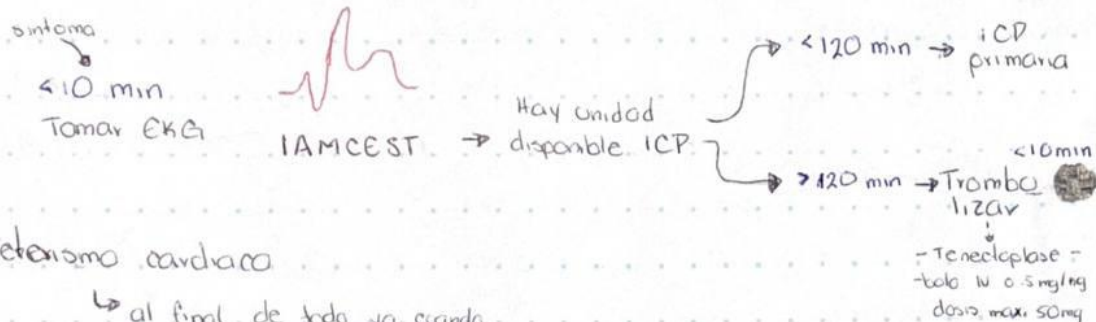 sintoma
<10 min
Tomar EKG
IAMCEST
→ Hay unidad
disponible ICP
<120 min → iCP
primaria
<10min
>120 min → Trombo
lizar
- Tenecteplase -
- bolo IV 0.5 mg/kg
dosis max. 50mg
cardiaco
↳ al final de todo ya cuando